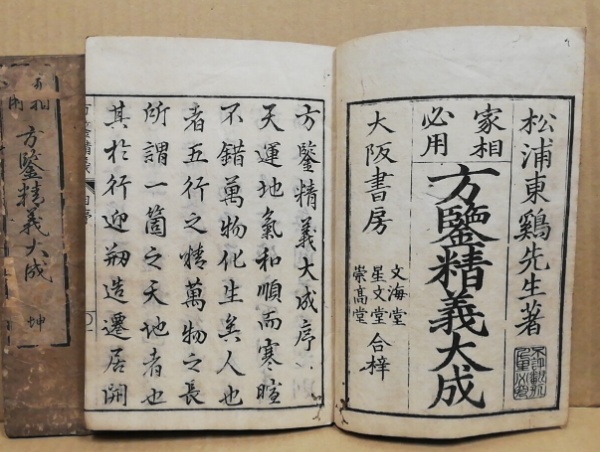 松浦東鷄先生著
家相
必用
方鑒精義大成
大阪書房
文海堂
星文堂
崇髙堂
合梓
方鑒精義大成序
天運地氣和順而寒暄
不錯萬物化生矣人也
者五行之精萬物之長
所謂一箇之天地者也
其於行迎剏造遷居開
方鑒精義大成 坤